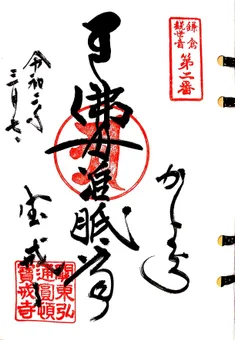 鎌倉
観世音
第二番
かまくら
佛母准胝尊
令和二年
三月七日
宝戒寺
關東弘
通圓頓
寶戒寺